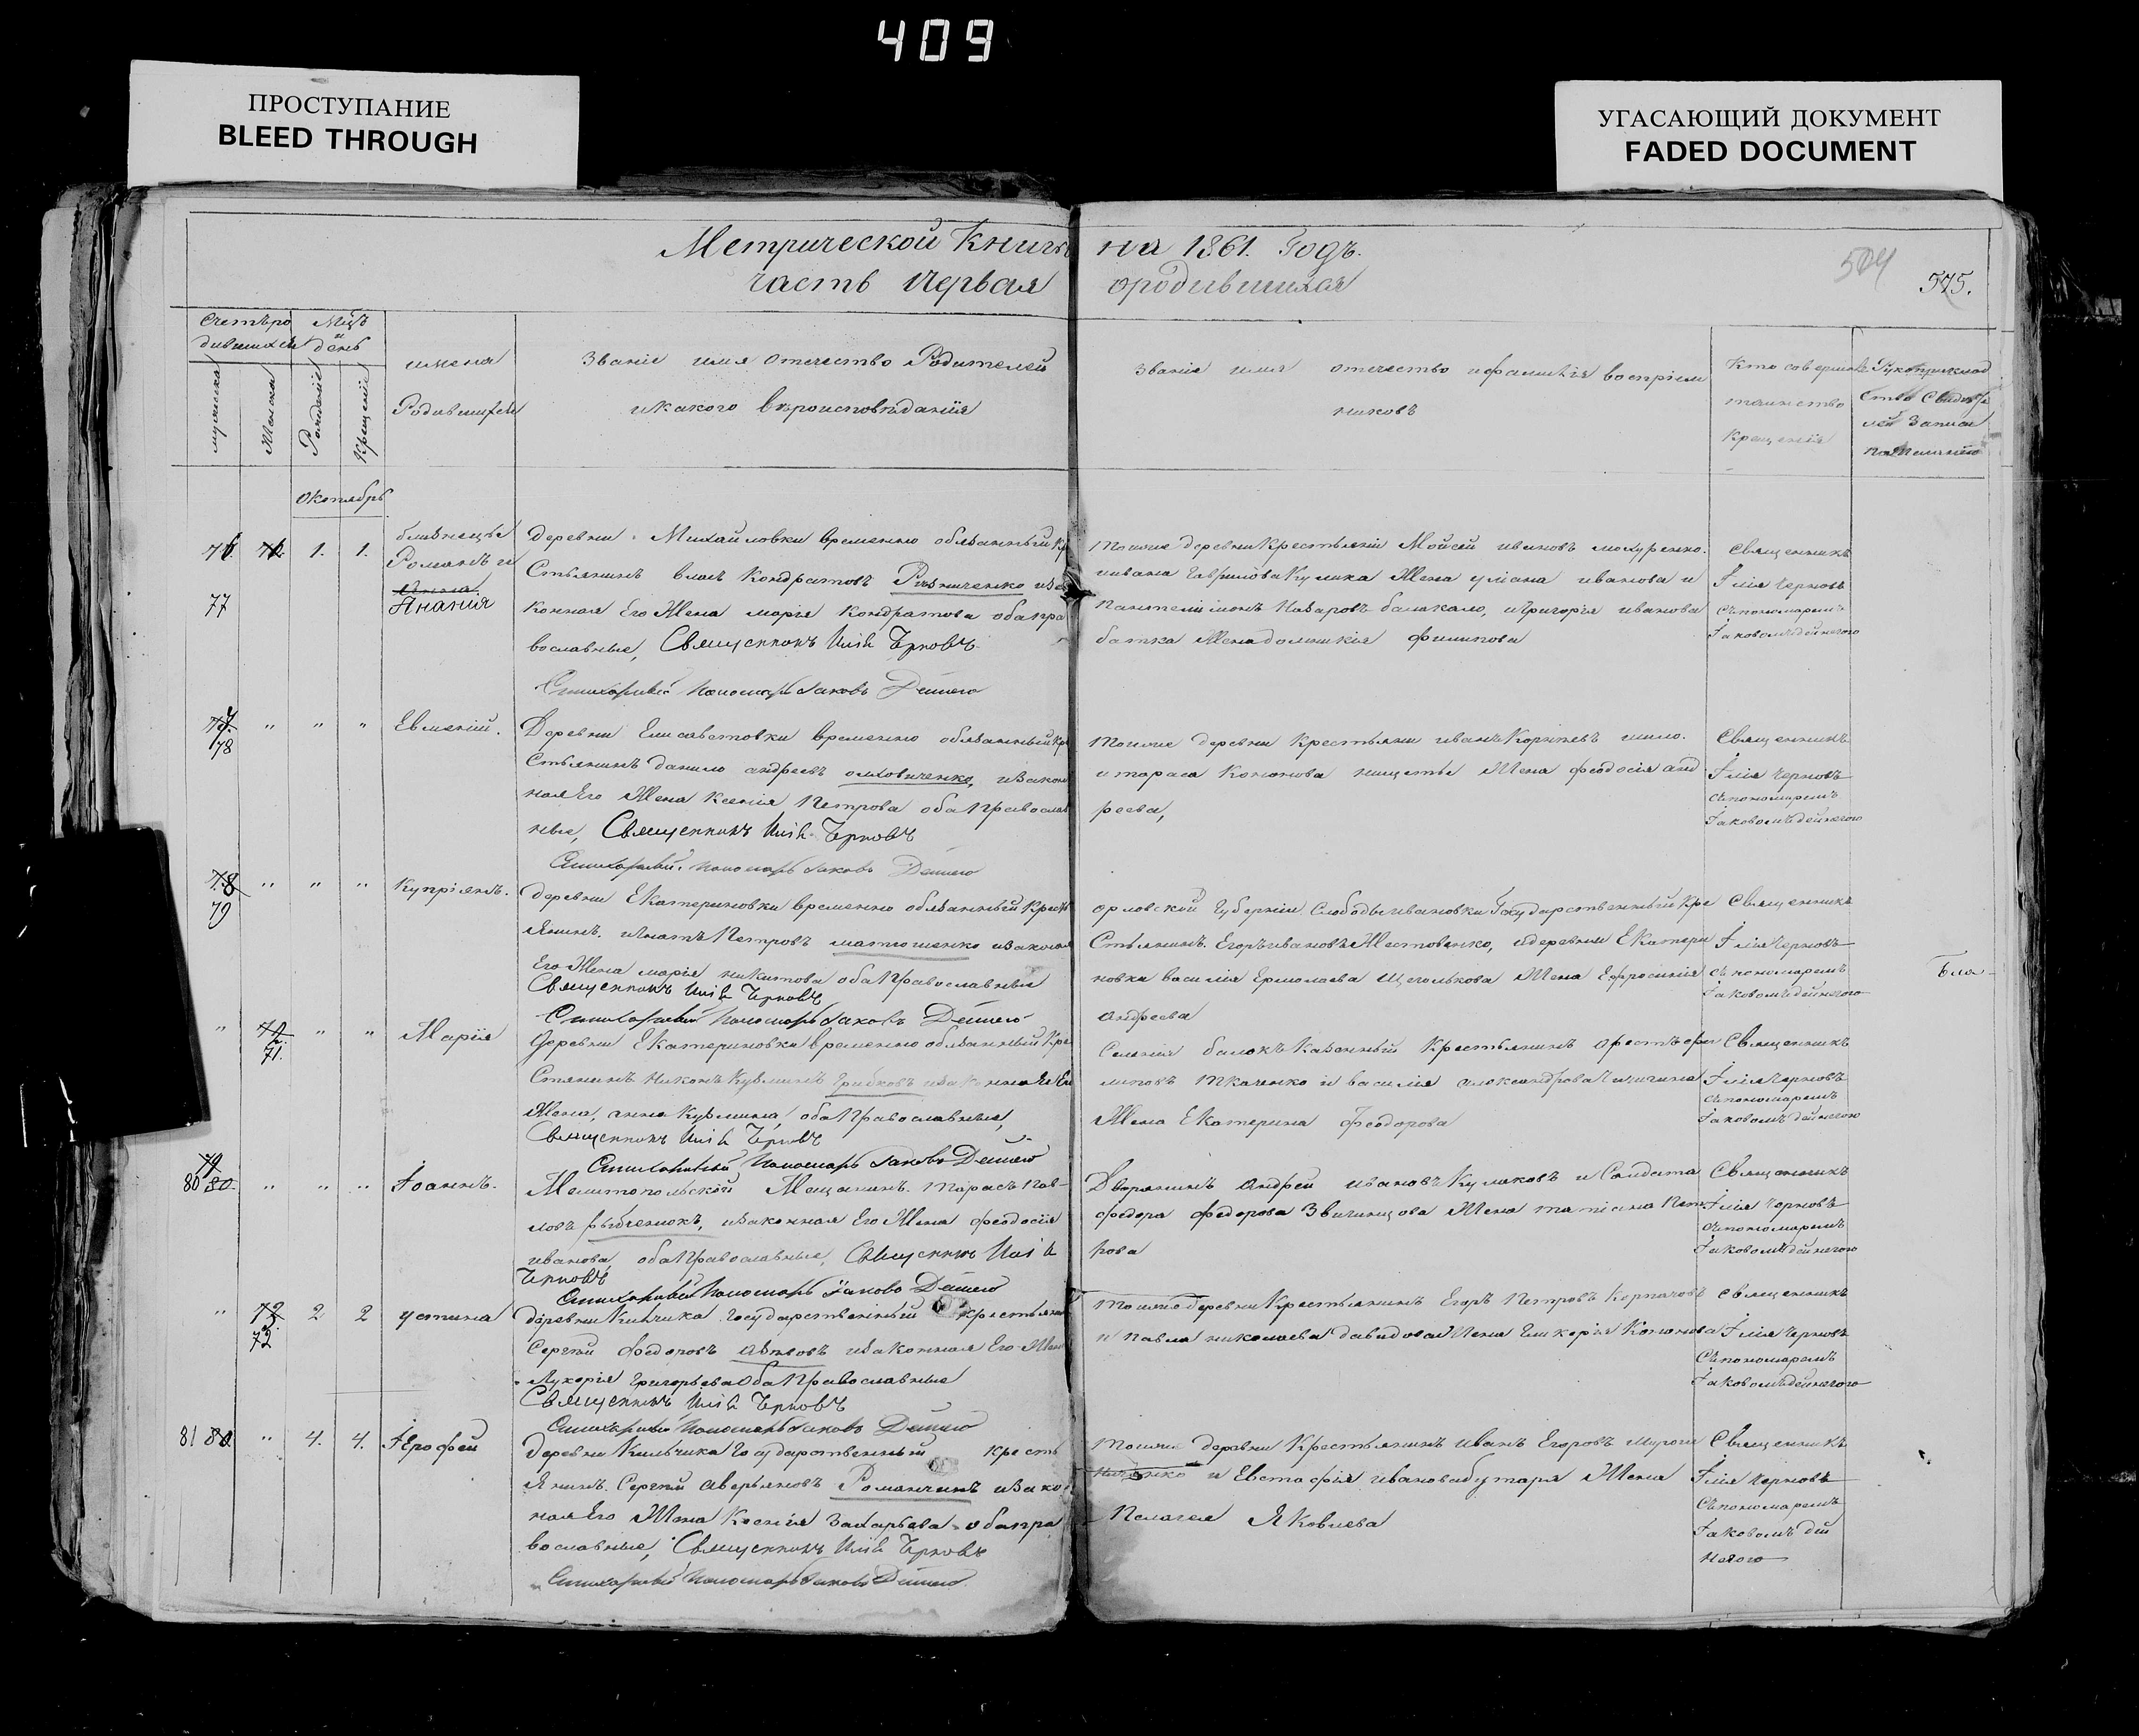 409
ПРОСТУПАНИЕ
BLEED THROUGH
УГАСАЮЩИЙ ДОКУМЕНТ
FADED DOCUMENT
Метрической Книги на 1861. Годъ.
часть первая ородившихся
504
575.
Счетъ родившихся
Мцъ и день
мужеска
Женска
Рожденіе
Крещеніе
имена
Родившихся
Званіе имя отечество Родителей
икакого вѣроисповѣданія
Званіе имя отечество ифамилія воспріем
никовъ
Кто соверша
таинство
крещенія
Рукоприклад
ство Свидѣте
лей Записи
Октябрь
76. 1. 1.
близнецы
Романъ и
Анна
Анания
77
деревни Михайловки временно обязанный кре
стьянинъ Кондратовъ Резниченко иза
конная Его Жена марья Кондратова оба пра
вославные, Священникъ Илія Черновъ
Стихарный Пономарь Іаковъ
тойже деревни Крестьянинъ Мойсей ивановъ
ивана Гаврилова Кулика Жена улиана иванова и
Пантелиймонъ Назаровъ балакало, игригорія иванова
батка Жена филипова
Священникъ
Ілія Черновъ
съпономаремъ
Іаковомъ дейнегою
78 " " "
Евмений.
Деревни Елисаветовки временно обязанный кре
стьянинъ данило андреевъ изакон
ная Его Жена Ксения Петрова оба Православ
ные, Священникъ Илія Черновъ
Стихарный пономарь Іаковъ
тойже деревни Крестьянин иванъ
и тараса Кононова Жена феодосія анд
реева,
Священникъ
Ілія Черновъ
съпономаремъ
Іаковомъ дейнегою
78
79 " " "
Купріянъ.
деревни Екатериновки временно обязанный Кресть
янинъ. игнатъ Петровъ матюшенко изаконная
Его Жена марія никитова оба Православные
Священникъ Илія Черновъ
Стихарный Пономарь Іаковъ
орловской Губерніи Слободы ивановки Государственный Кре
стьянинъ. Егоръ ивановъ идеревни Екатери
новки василія Ермолаева Щеголькова Жена Ефросинія
андреева
Священникъ
Ілія Черновъ
съ пономаремъ
Іаковомъ дейнегою
" 71. " "
Марія
деревни Екатериновки временно обязанный Кре
стянинъ Никонъ Кузминъ Грибковъ изаконная Его
Жена, анна Кузмина, оба Православные,
Священникъ Илія Черновъ
Стихарный Пономарь Іаковъ
Селения балокъ Казенный Крестьянинъ
Ткаченко и василія александрова
Жена Екатерина Феодорова
Священникъ
Ілія Черновъ
съпономаремъ
Іаковомъ дейнегою
79
80 80. " " "
Іоаннъ.
Мелитопольский Мещанинъ. Тарасъ Пав
ловъ изаконная Его Жена феодосія
иванова, оба Православные, Священникъ Илія
Черновъ
Стихарный Пономарь Іаковъ
Дворянинъ андрей ивановъ Кулаковъ и Солдата
федора федорова Жена татіана Пет
рова
Священникъ
Ілія Черновъ
съпономаремъ
Іаковомъ дейнегою
" 72 2 2
устина
деревни Государственный крестьянин
Сергей Федоровъ изаконная Его Жена
Лукерія Григорьева оба Православные
Священникъ Илія Черновъ
Стихарный Пономарь Іаковъ
тойже деревни Крестьянинъ Егоръ Петровъ
и Павла николаева давидова Жена Гликерія Кононова
Священникъ
Ілія Черновъ
съпономаремъ
Іаковомъ дейнегою
81 80 " 4. 4.
Іерофей
деревни Государственный кресть
янинъ. Сергей аверьяновъ Романчинъ изако
ная Его Жена Ксенія Захарьева оба пра
вославные, Священникъ Илія Черновъ
Стихарный Пономарь Іаковъ
тойже деревни Крестьянинъ иванъ Егоровъ
и Евстафія иванова бутаря Жена
Пелагея Яковлева
Священникъ
Ілія Черновъ
съпономаремъ
Іаковомъ дей
негою